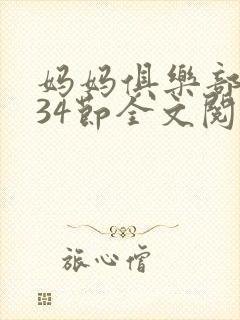 妈妈俱樂部
34節全文閱
旅心僧